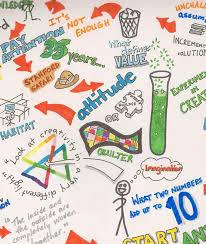 IT'S
NOT
ENOUGH
PAY
ATTENTION
25
years...
WHAT
DEFINES
VALUE?
UNCHALL
ASSUM
INCREMENT
STANFORD
SAFARI
attitude
or
EXPERIMEN
IN
CREAT
HABITAT
"Look at creativity in a
very different
QUILTER
imagination
"The inside and
the outside are
completely woven
together."
WHAT TWO NUMBERS
ADD UP TO
10
START
AN